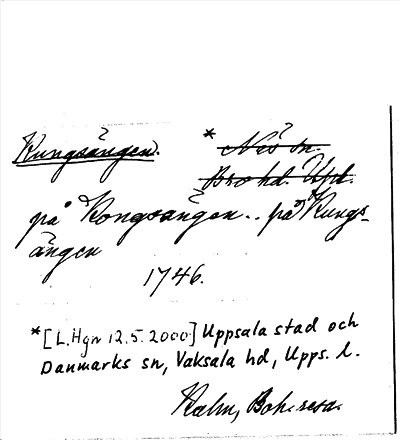 Kungsängen. * ~~Näs sn.~~
~~Bro hd. Upl.~~
på Kongsängen.. på Kungs-
ängen
1746.
*[L.Hgn 12.5.2000] Uppsala stad och
Danmarks sn, Vaksala hd, Upps. l.
Kalm, Boh. resa.